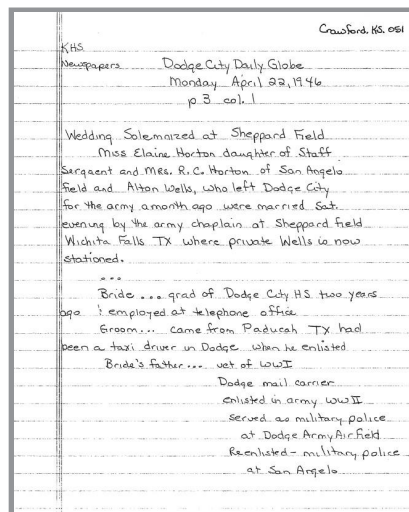 Crawford. KS. 051
KHS
Newspapers Dodge City Daily Globe
Monday April 22, 1946
p 3 col. 1
Wedding Solemnized at Sheppard Field
Miss Elaine Horton daughter of Staff
Sergeant and Mrs. R.C. Horton of San Angelo
field and Alton Wells, who left Dodge City
for the army a month ago were married Sat.
evening by the army chaplain at Sheppard field
Wichita Falls TX where private Wells is now
stationed.
...
Bride ... grad of Dodge City HS two years
ago & employed at telephone office
Groom... came from Paducah TX had
been a taxi driver in Dodge when he enlisted
Bride's father... vet of WWI
Dodge mail carrier
enlisted in army WWII
served as military police
at Dodge Army Air Field
Reenlisted - military police
at San Angelo